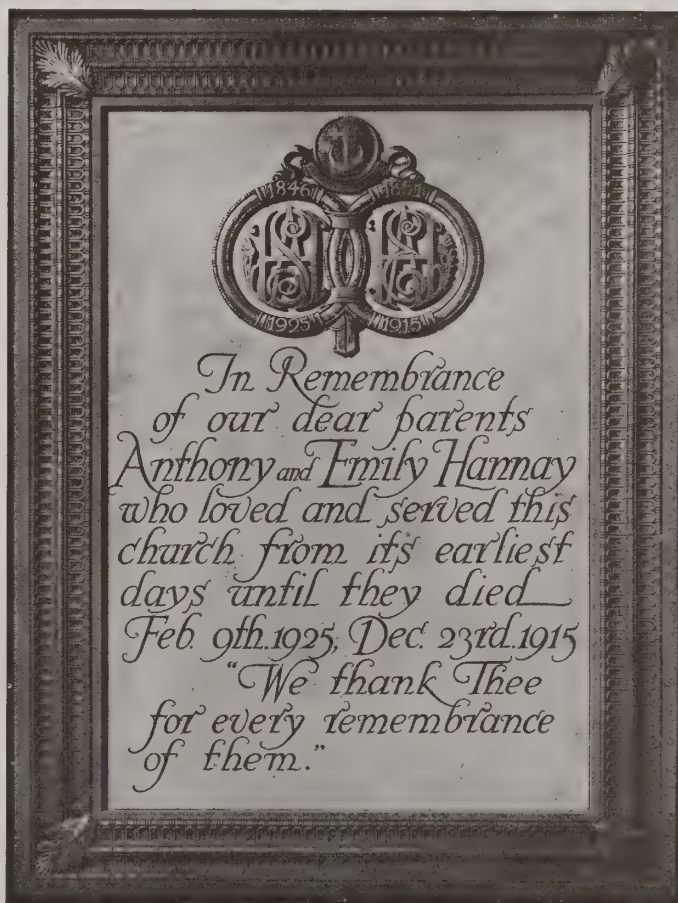 1846
1925 1915
In Remembrance
of our dear parents
Anthony and Emily Hannay
who loved and served this
church from its earliest
days until they died
Feb. 9th.1925, Dec. 23rd.1915
"We thank Thee
for every remembrance
of them."